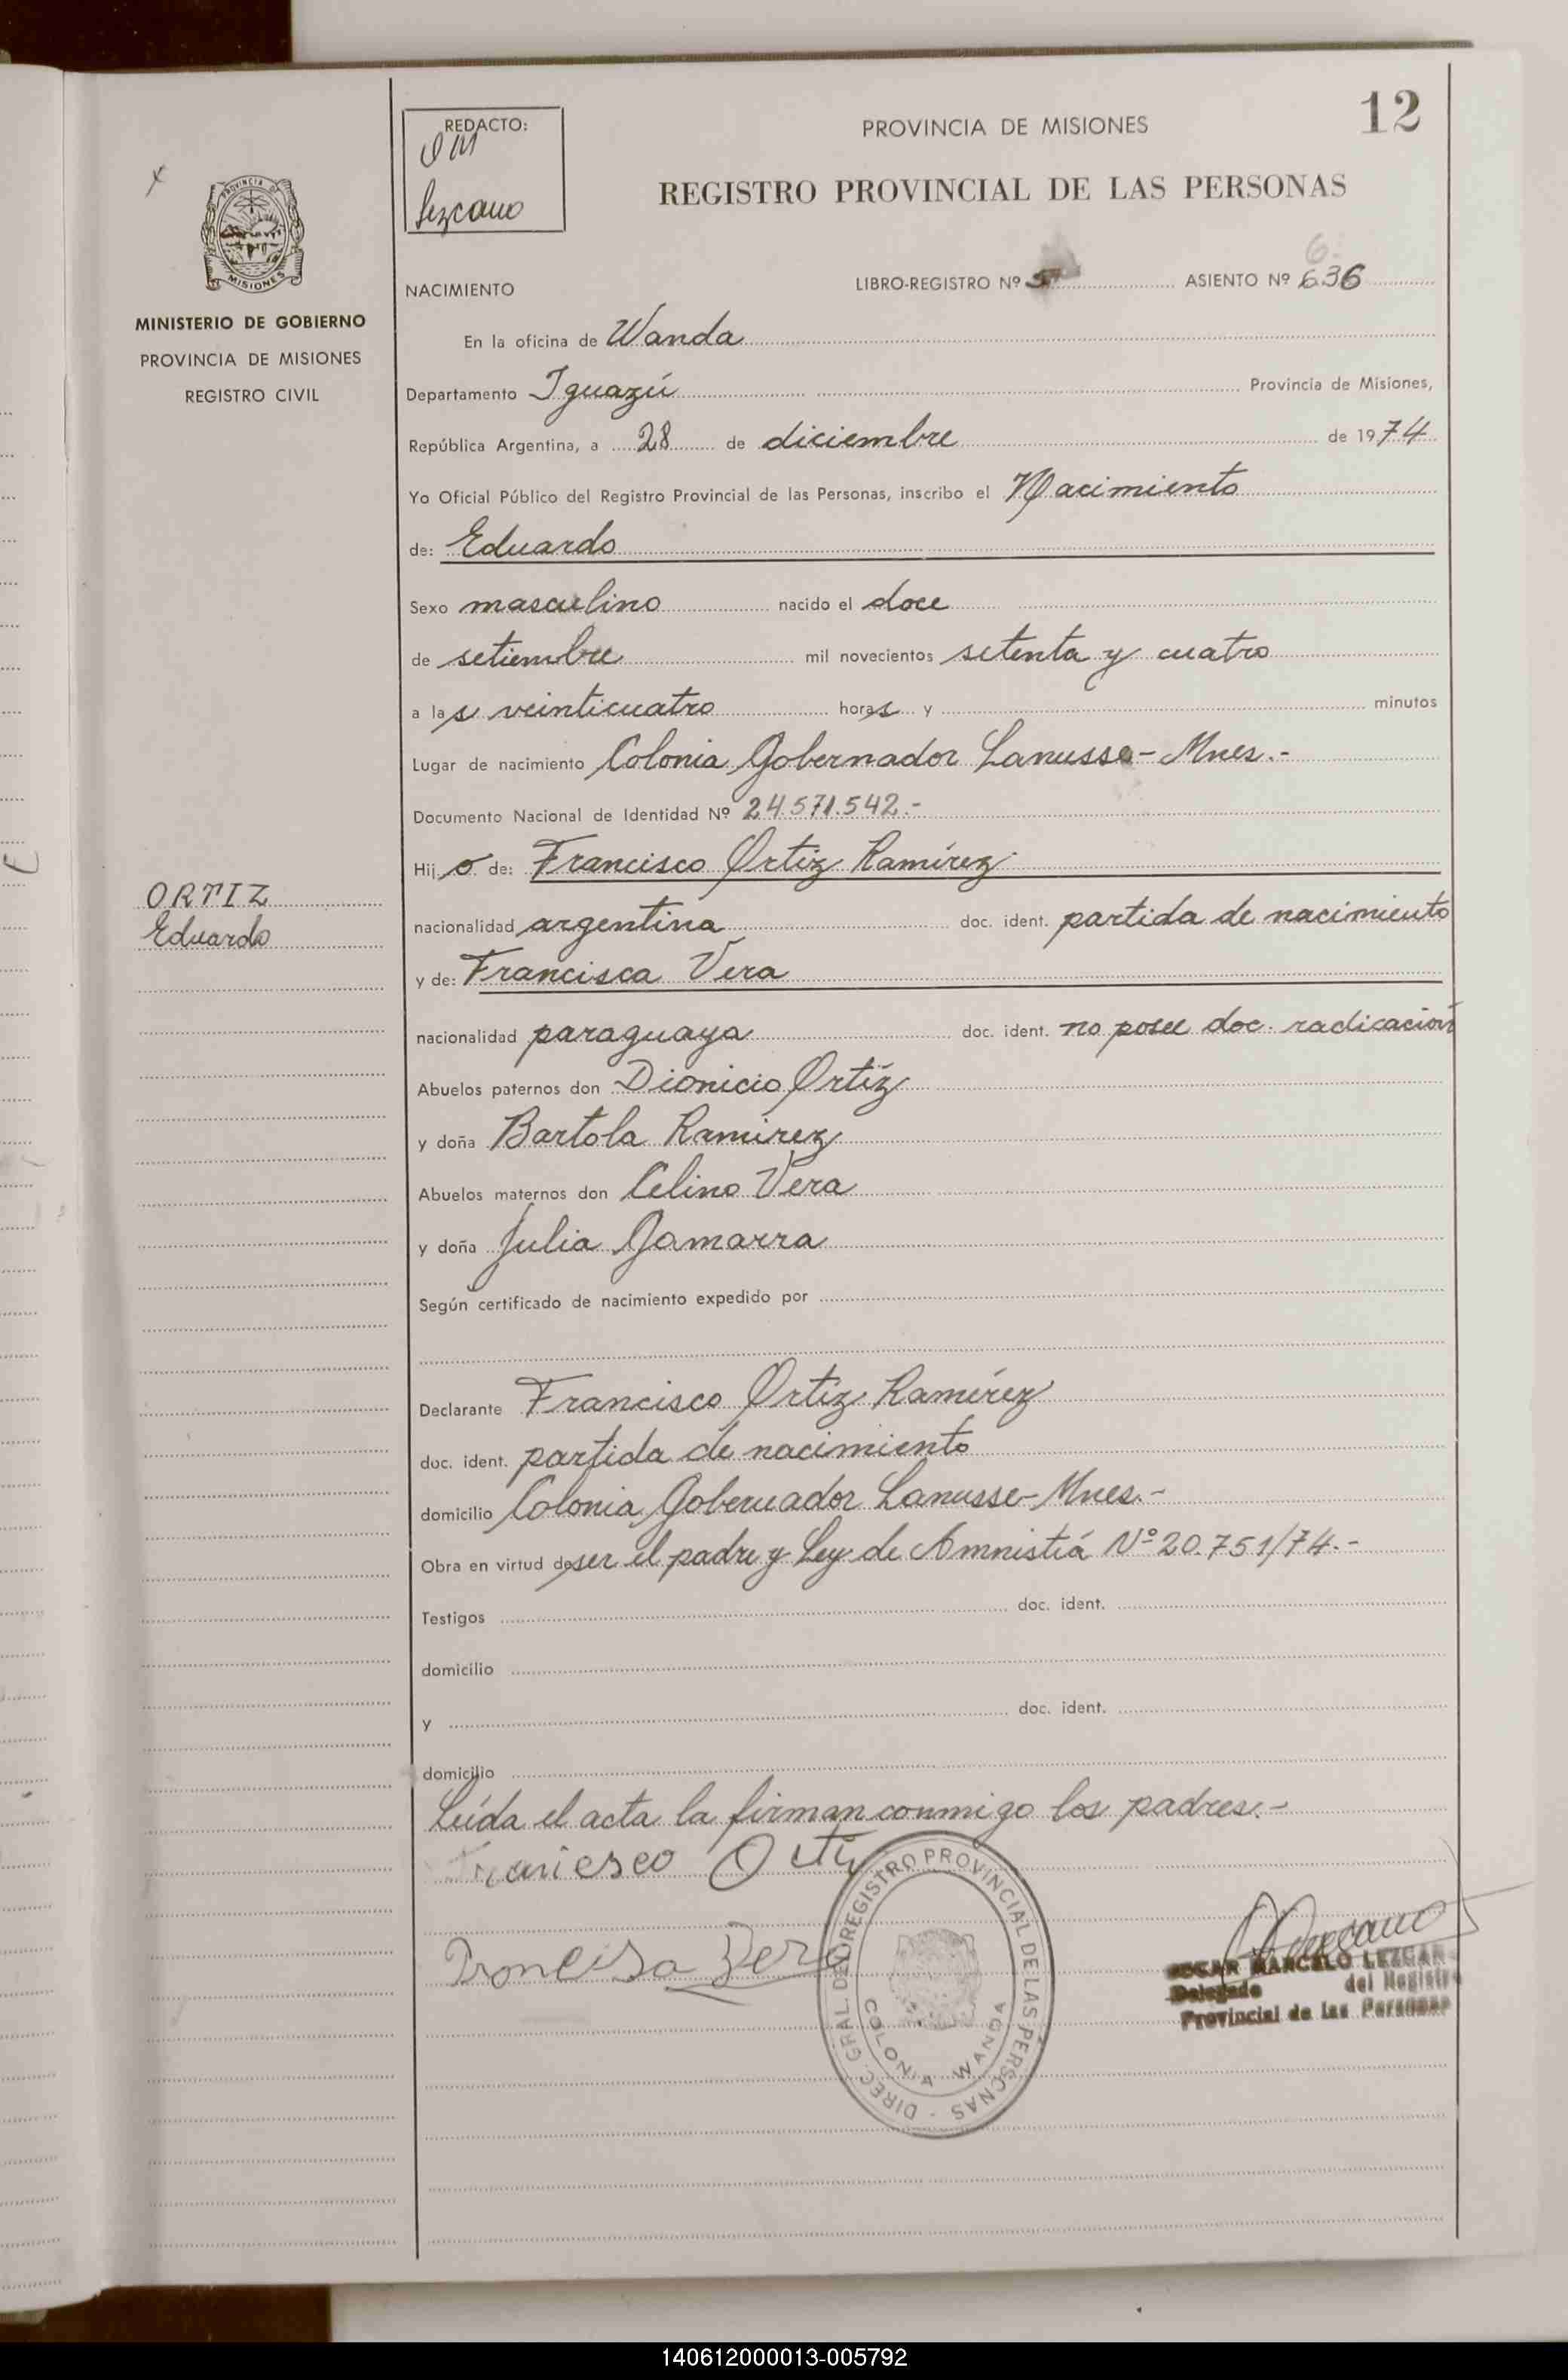 12
REDACTO:
Lezcano
PROVINCIA DE MISIONES
REGISTRO PROVINCIAL DE LAS PERSONAS
PROVINCIA DE
MISIONES
MINISTERIO DE GOBIERNO
PROVINCIA DE MISIONES
REGISTRO CIVIL
6
NACIMIENTO LIBRO-REGISTRO Nº 5 ASIENTO Nº 636
En la oficina de Wanda
Departamento Iguazú Provincia de Misiones,
República Argentina, a 28 de diciembre de 1974
Yo Oficial Público del Registro Provincial de las Personas, inscribo el Nacimiento
de: Eduardo
Sexo masculino nacido el doce
de setiembre mil novecientos setenta y cuatro
a las veinticuatro horas y minutos
Lugar de nacimiento Colonia Gobernador Lanusse - Mnes.-
Documento Nacional de Identidad Nº 24.571.542.-
Hijo de: Francisco Ortiz Ramírez
ORTIZ
Eduardo
nacionalidad argentina doc. ident. partida de nacimiento
y de: Francisca Vera
nacionalidad paraguaya doc. ident. no posee doc. radicación
Abuelos paternos don Dionicio Ortíz
y doña Bartola Ramirez
Abuelos maternos don Celino Vera
y doña Julia Gamarra
Según certificado de nacimiento expedido por
Declarante Francisco Ortíz Ramírez
doc. ident. partida de nacimiento
domicilio Colonia Gobernador Lanusse - Mnes.-
Obra en virtud de ser el padre y Ley de Amnistiá Nº 20.751/74.-
Testigos doc. ident.
domicilio
y doc. ident.
domicilio
Leída el acta la firman conmigo los padres.-
Francisco Ortiz
Froncisa Vera
DIREC. GRAL. DEL REGISTRO PROVINCIAL DE LAS PERSONAS
COLONIA WANDA
Lezcano
OSCAR MARCELO LEZCANO
Delegado del Registro
Provincial de las Personas
140612000013-005792